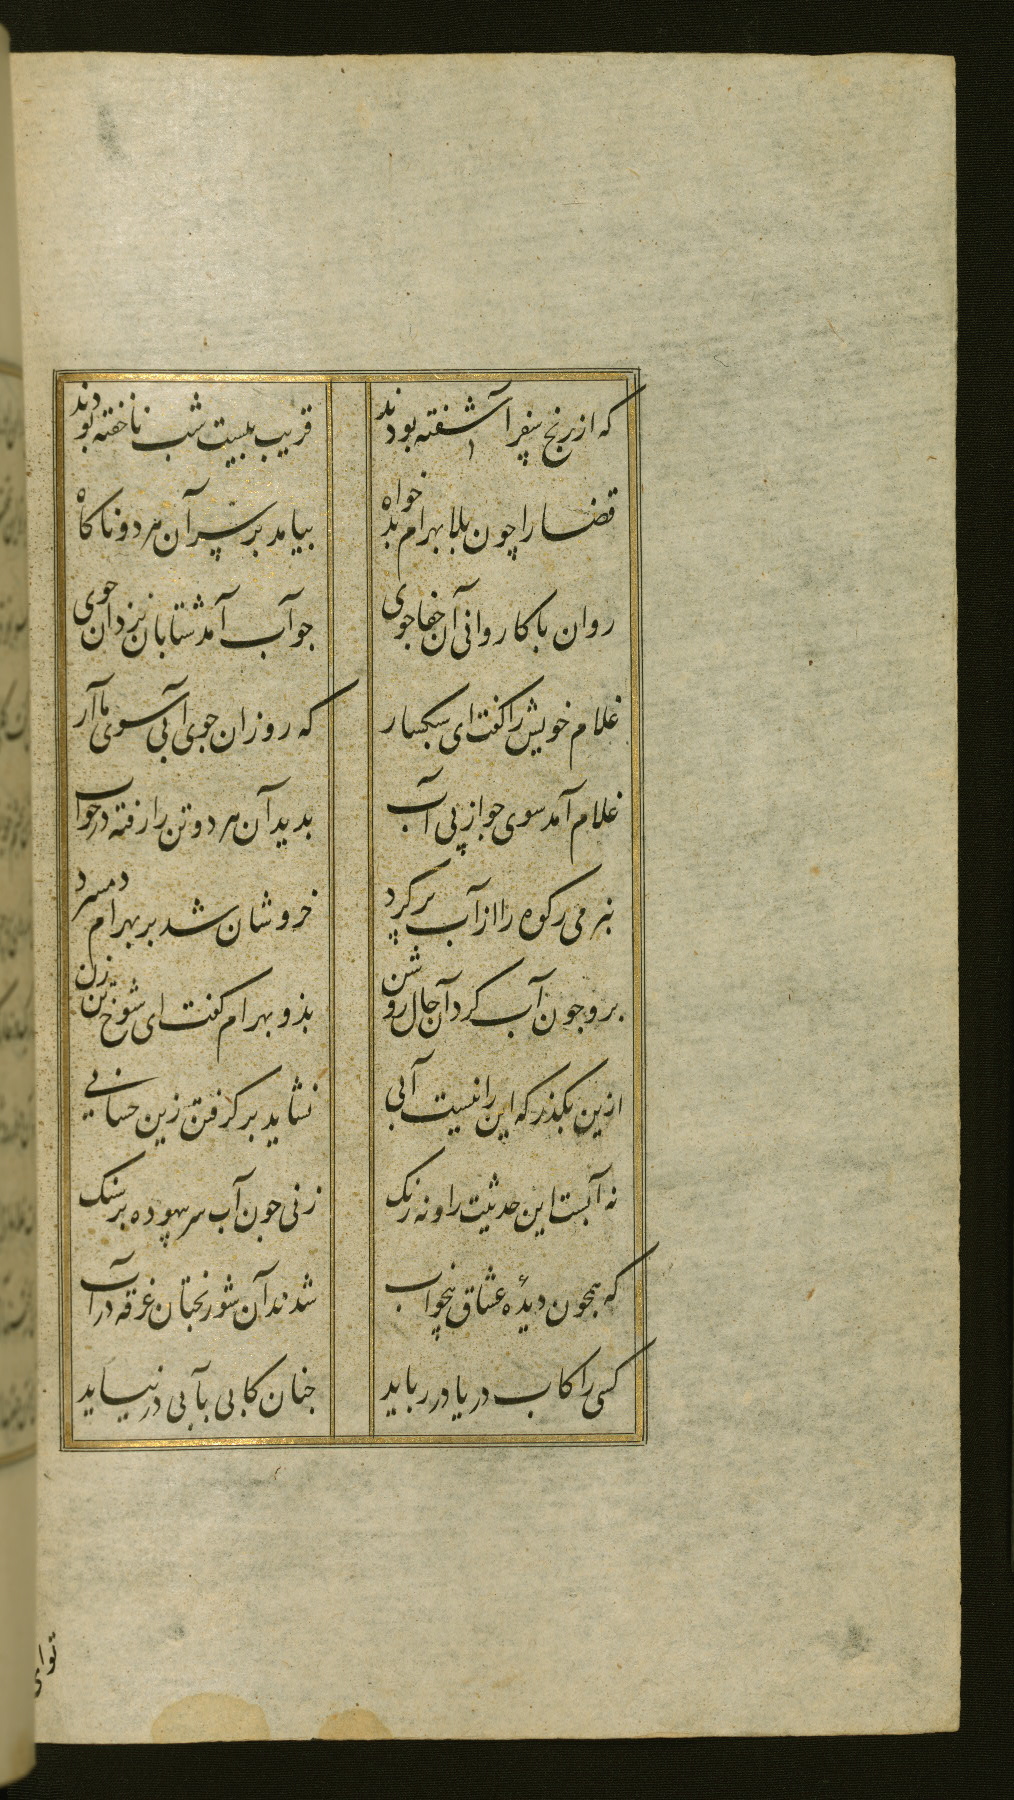 که از رنج سفر آشفته بودند
قریب بیست شب ناخفته بودند
قضا را چون بلا بهرام بدخواه
بیامد بر سر آن هر دو ناکاه
روان با کاروانی آن جفاجوی
جو آب آمد شتابان نزد آن جوی
غلام خویش را کفت ای سبکسار
که رو زان جوی آبی سوی ما آر
غلام آمد سوی جو از پی آب
بدید آن هر دو تن را رفته در خواب
بنرمی رکوه را از آب پر کرد
خروشان شد بر بهرام دمسرد
برو جون آب کرد آن حال روشن
بذو بهرام کفت ای شوخ تن زن
ازین بکذر که این را نیست آبی
نشاید بر کرفتن زین حسابی
نه آبست این حدیثت را و نه رنک
زنی جون آب سر بیهوده بر سنک
که همجون دیدهٔ عشاق بیخواب
شدند آن شوربختان غرقه در آب
کسی را کاب دریا در رباید
جنان کابی بآبی در نیاید
توای